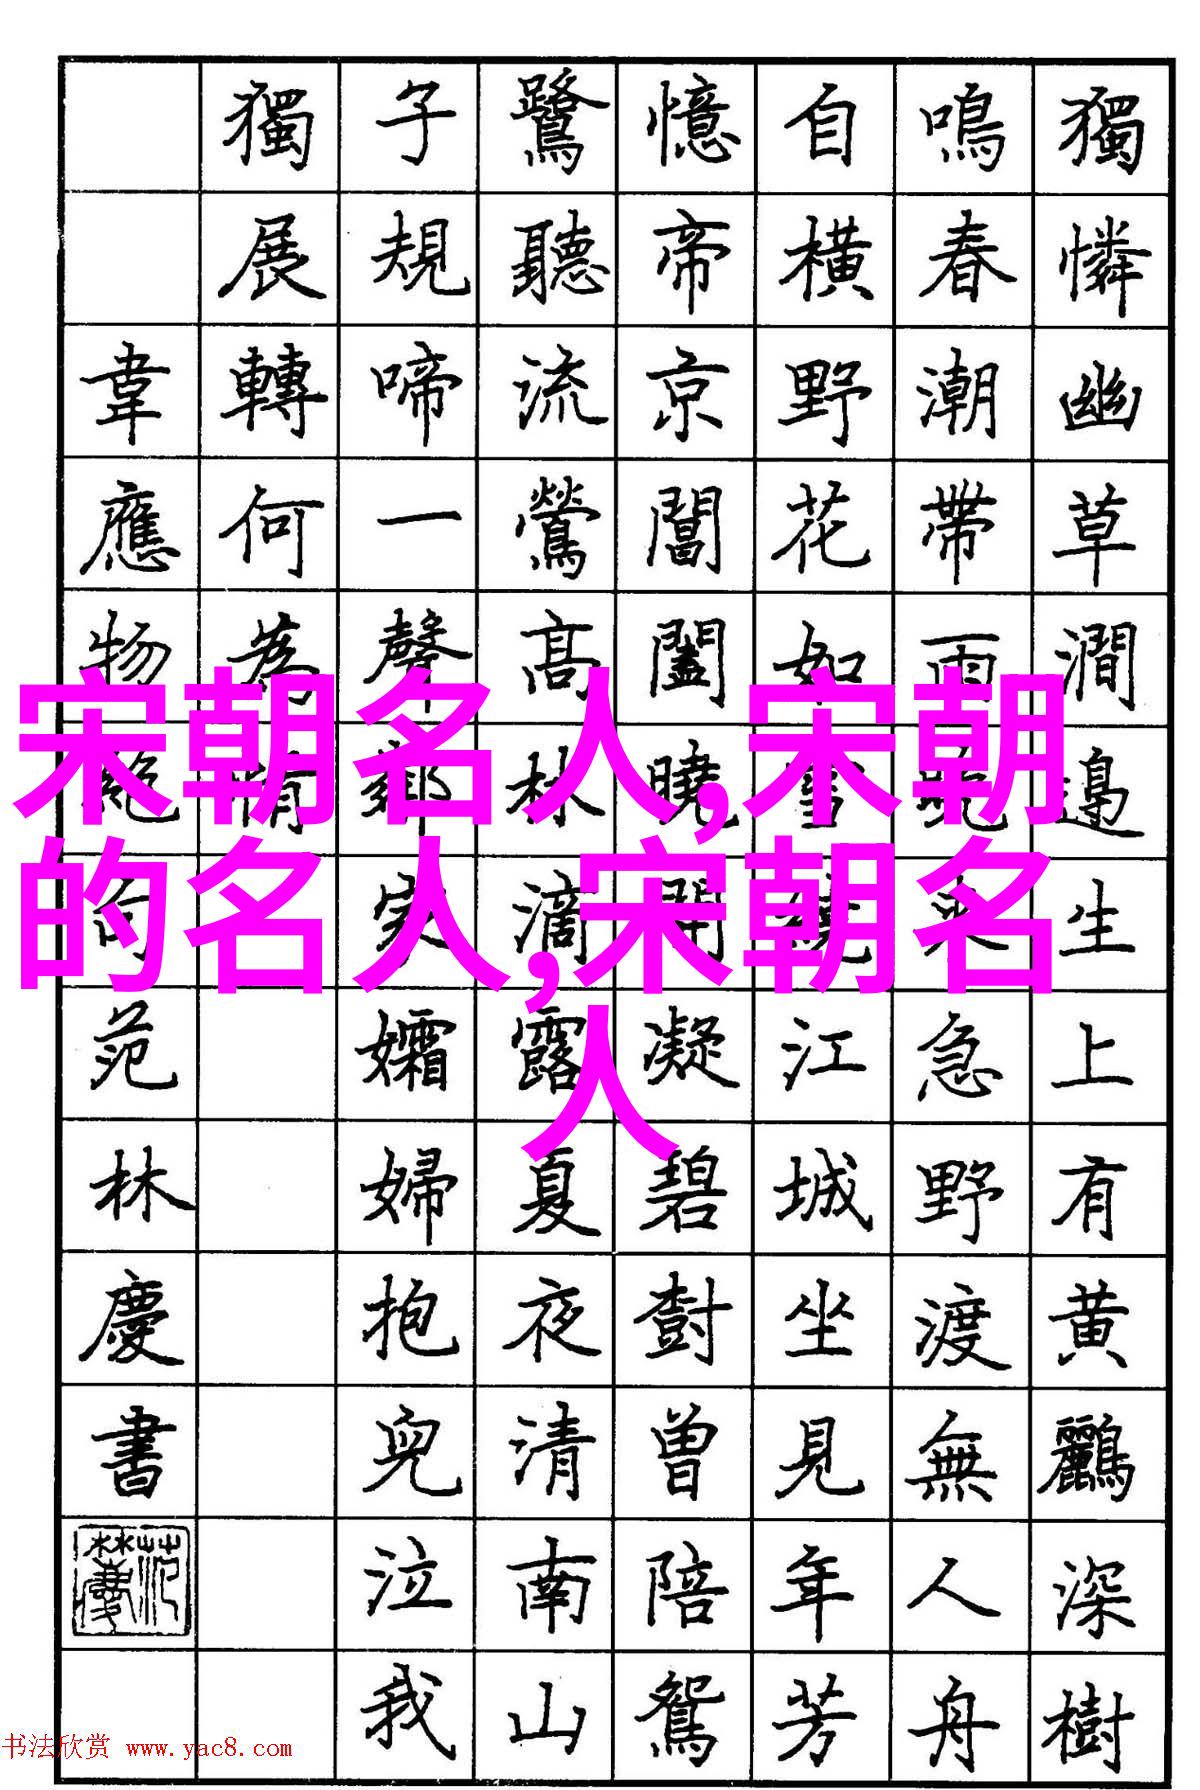 獨憐幽草澗邊生上有黄鸝深樹
鳴春潮帶雨晚來急野渡無人舟
自橫野花如雪繞江城坐見年芳
憶帝京閶闔曉開凝碧樹曾陪鴛
鷺聽流鶯高林滴露夏夜清南山
子規啼一聲鄰家孀婦抱兒泣我
獨展轉何為情
韋應物絕句范林慶書
宋朝名人,宋朝
的名人,宋朝名
人
书法欣赏 www.yac8.com